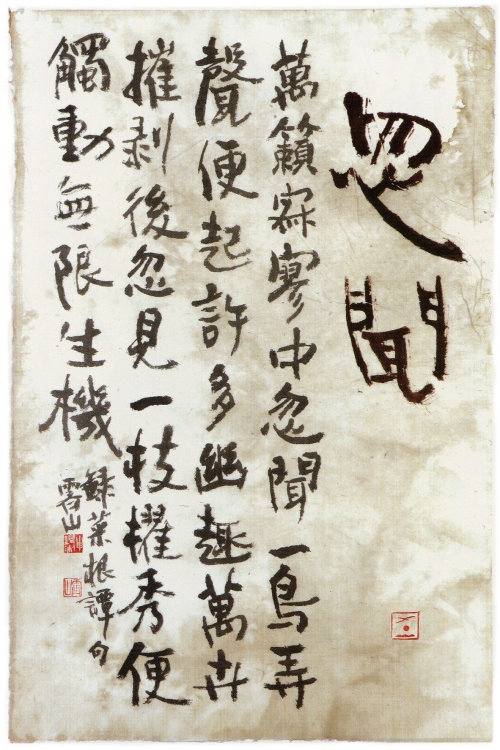 忽聞
萬籟寂寥中忽聞一鳥弄
聲便起許多幽趣萬卉
摧剥後忽見一枝擢秀便
觸動無限生機
錄菜根譚句
雪山